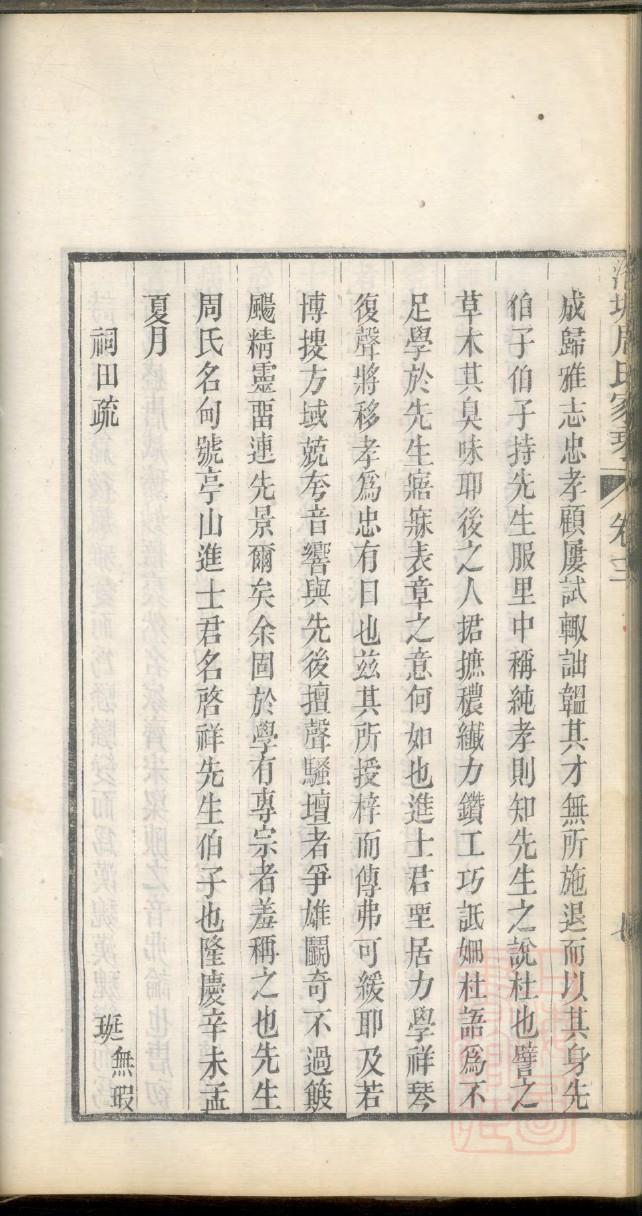 周氏家
卷十二
成歸雅志忠孝顧屢試輙詘韞其才無所施退而以其身先
伯子伯子持先生服里中稱純孝則知先生之說杜也譬之
草木其臭味耶後之人捃摭穠纖力鑽工巧詆姍杜語爲不
足學於先生寤寐表章之意何如也進士君堊居力學祥琴
復聲將移孝爲忠有日也兹其所授梓而傳弗可緩耶及若
博搜方域兢夸音響與先後擅聲騷壇者爭雄鬬奇不過皷
颺精靈畱連先景爾矣余固於學有專宗者羞稱之也先生
周氏名甸號亭山進士君名啓祥先生伯子也隆慶辛未孟
夏月
祠田疏
珽無瑕